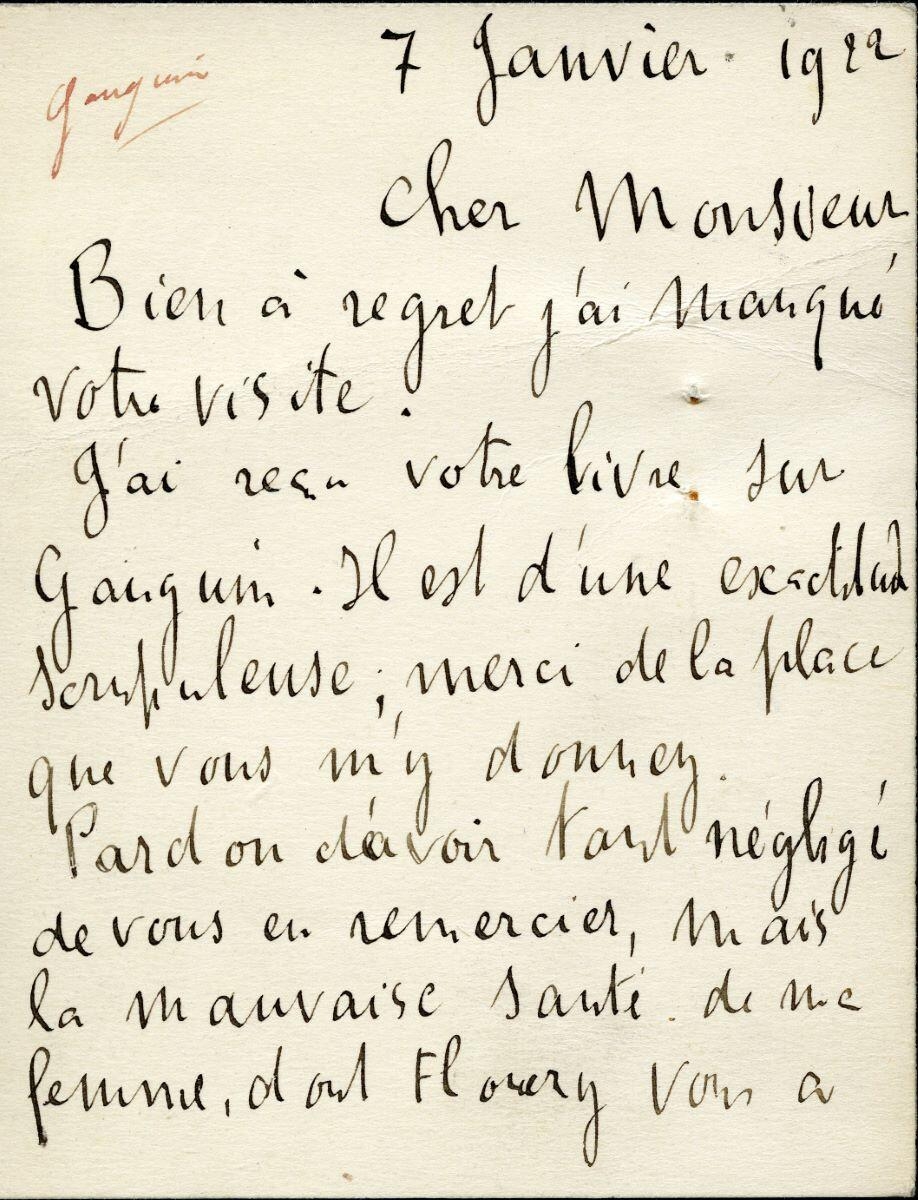 Gauguin
7 Janvier 1922
Cher Monsieur
Bien à regret j'ai manqué
votre visite.
J'ai reçu votre livre sur
Gauguin. Il est d'une exactitude
scrupuleuse; merci de la place
que vous m'y donnez.
Pardon d'avoir tant négligé
de vous en remercier, mais
la mauvaise santé de ma
femme, dont Floury vous a